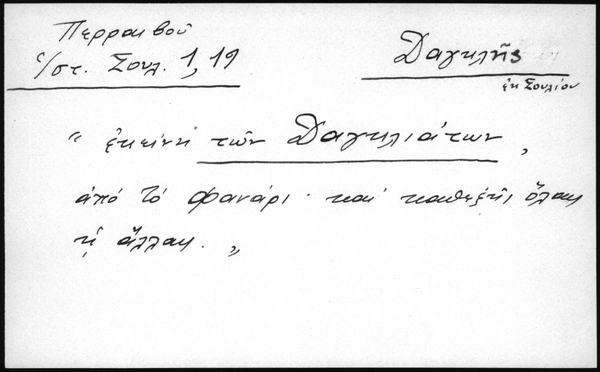 Περραιβού
ἱστ. Σουλ. 1, 19
Δαγκλῆς
ἐκ Σουλίου
" ἐκείνη τῶν Δαγκλιάτων,
ἀπό τό Φανάρι· καί καθεξῆς ὅλαι
ᾑ ἄλλαι. "